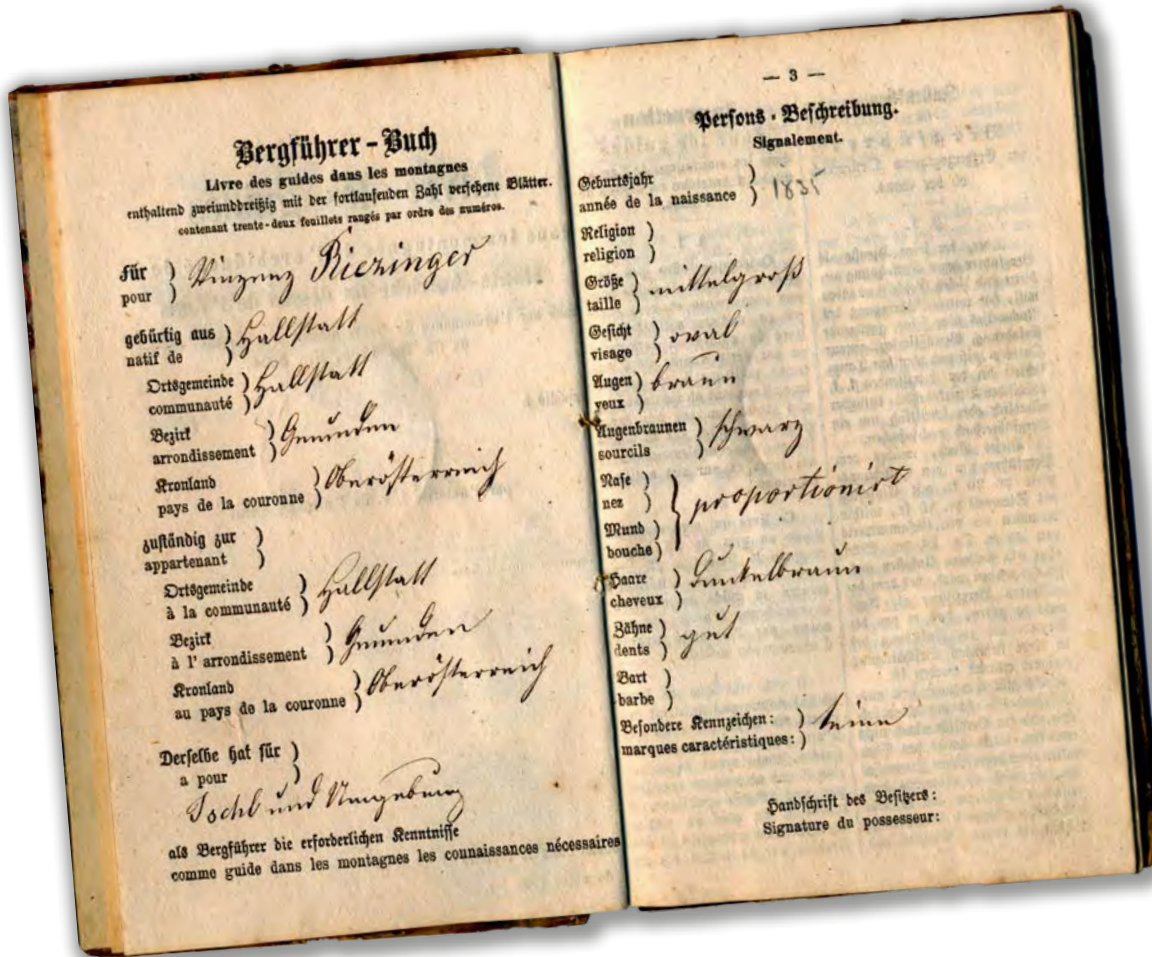 Bergführer-Buch
Livre des guides dans les montagnes
enthaltend zweiunddreißig mit der fortlaufenden Zahl versehene Blätter.
contenant trente-deux feuillets rangés par ordre des numéros.
Für
pour
Vinzenz Riezinger
gebürtig aus
natif de
Hallstatt
Ortsgemeinde
communauté
Hallstatt
Bezirk
arrondissement
Gmunden
Kronland
pays de la couronne
Oberösterreich
zuständig zur
appartenant
Ortsgemeinde
à la communauté
Hallstatt
Bezirk
à l'arrondissement
Gmunden
Kronland
au pays de la couronne
Oberösterreich
Derselbe hat für
a pour
Ischl und Umgebung
als Bergführer die erforderlichen Kenntnisse
comme guide dans les montagnes les connaissances nécessaires
— 3 —
Persons-Beschreibung.
Signalement.
Geburtsjahr
année de la naissance
1835
Religion
religion
Größe
taille
mittelgroß
Gesicht
visage
oval
Augen
yeux
braun
Augenbraunen
sourcils
schwarz
Nase
nez
Mund
bouche
proportionirt
Haare
cheveux
dunkelbraun
Zähne
dents
gut
Bart
barbe
Besondere Kennzeichen:
marques caractéristiques:
keine
Handschrift des Besitzers:
Signature du possesseur: